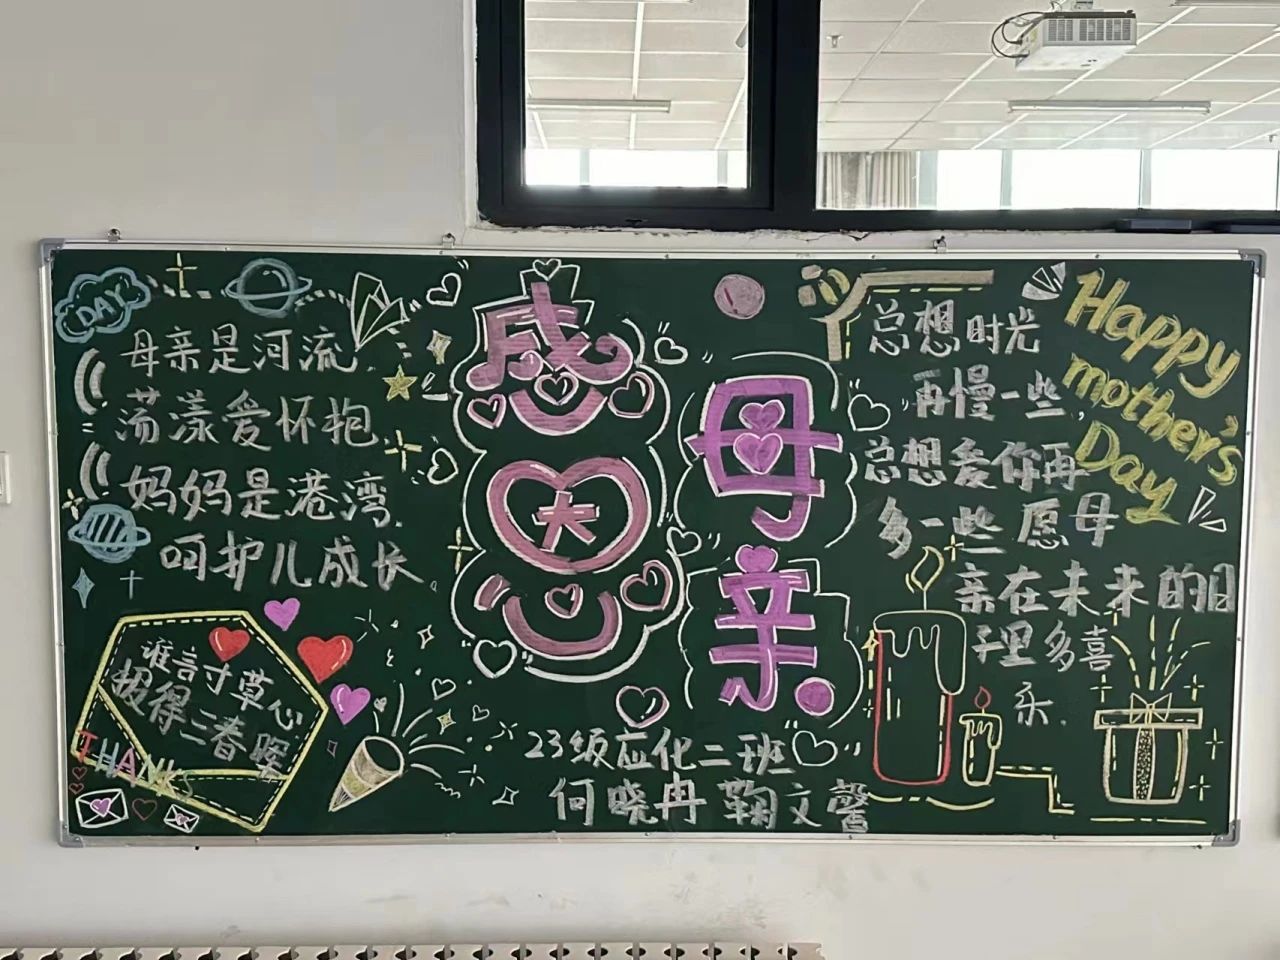 DAY
母亲是河流,
荡漾爱怀抱
妈妈是港湾,
呵护儿成长
谁言寸草心
报得三春晖
THANKS
感恩
母亲
23级应化二班
何晓冉 鞠文馨
总想时光
再慢一些,
总想爱你再
多一些 愿母
亲在未来的日
子里多喜
乐.
Happy
mother's
Day